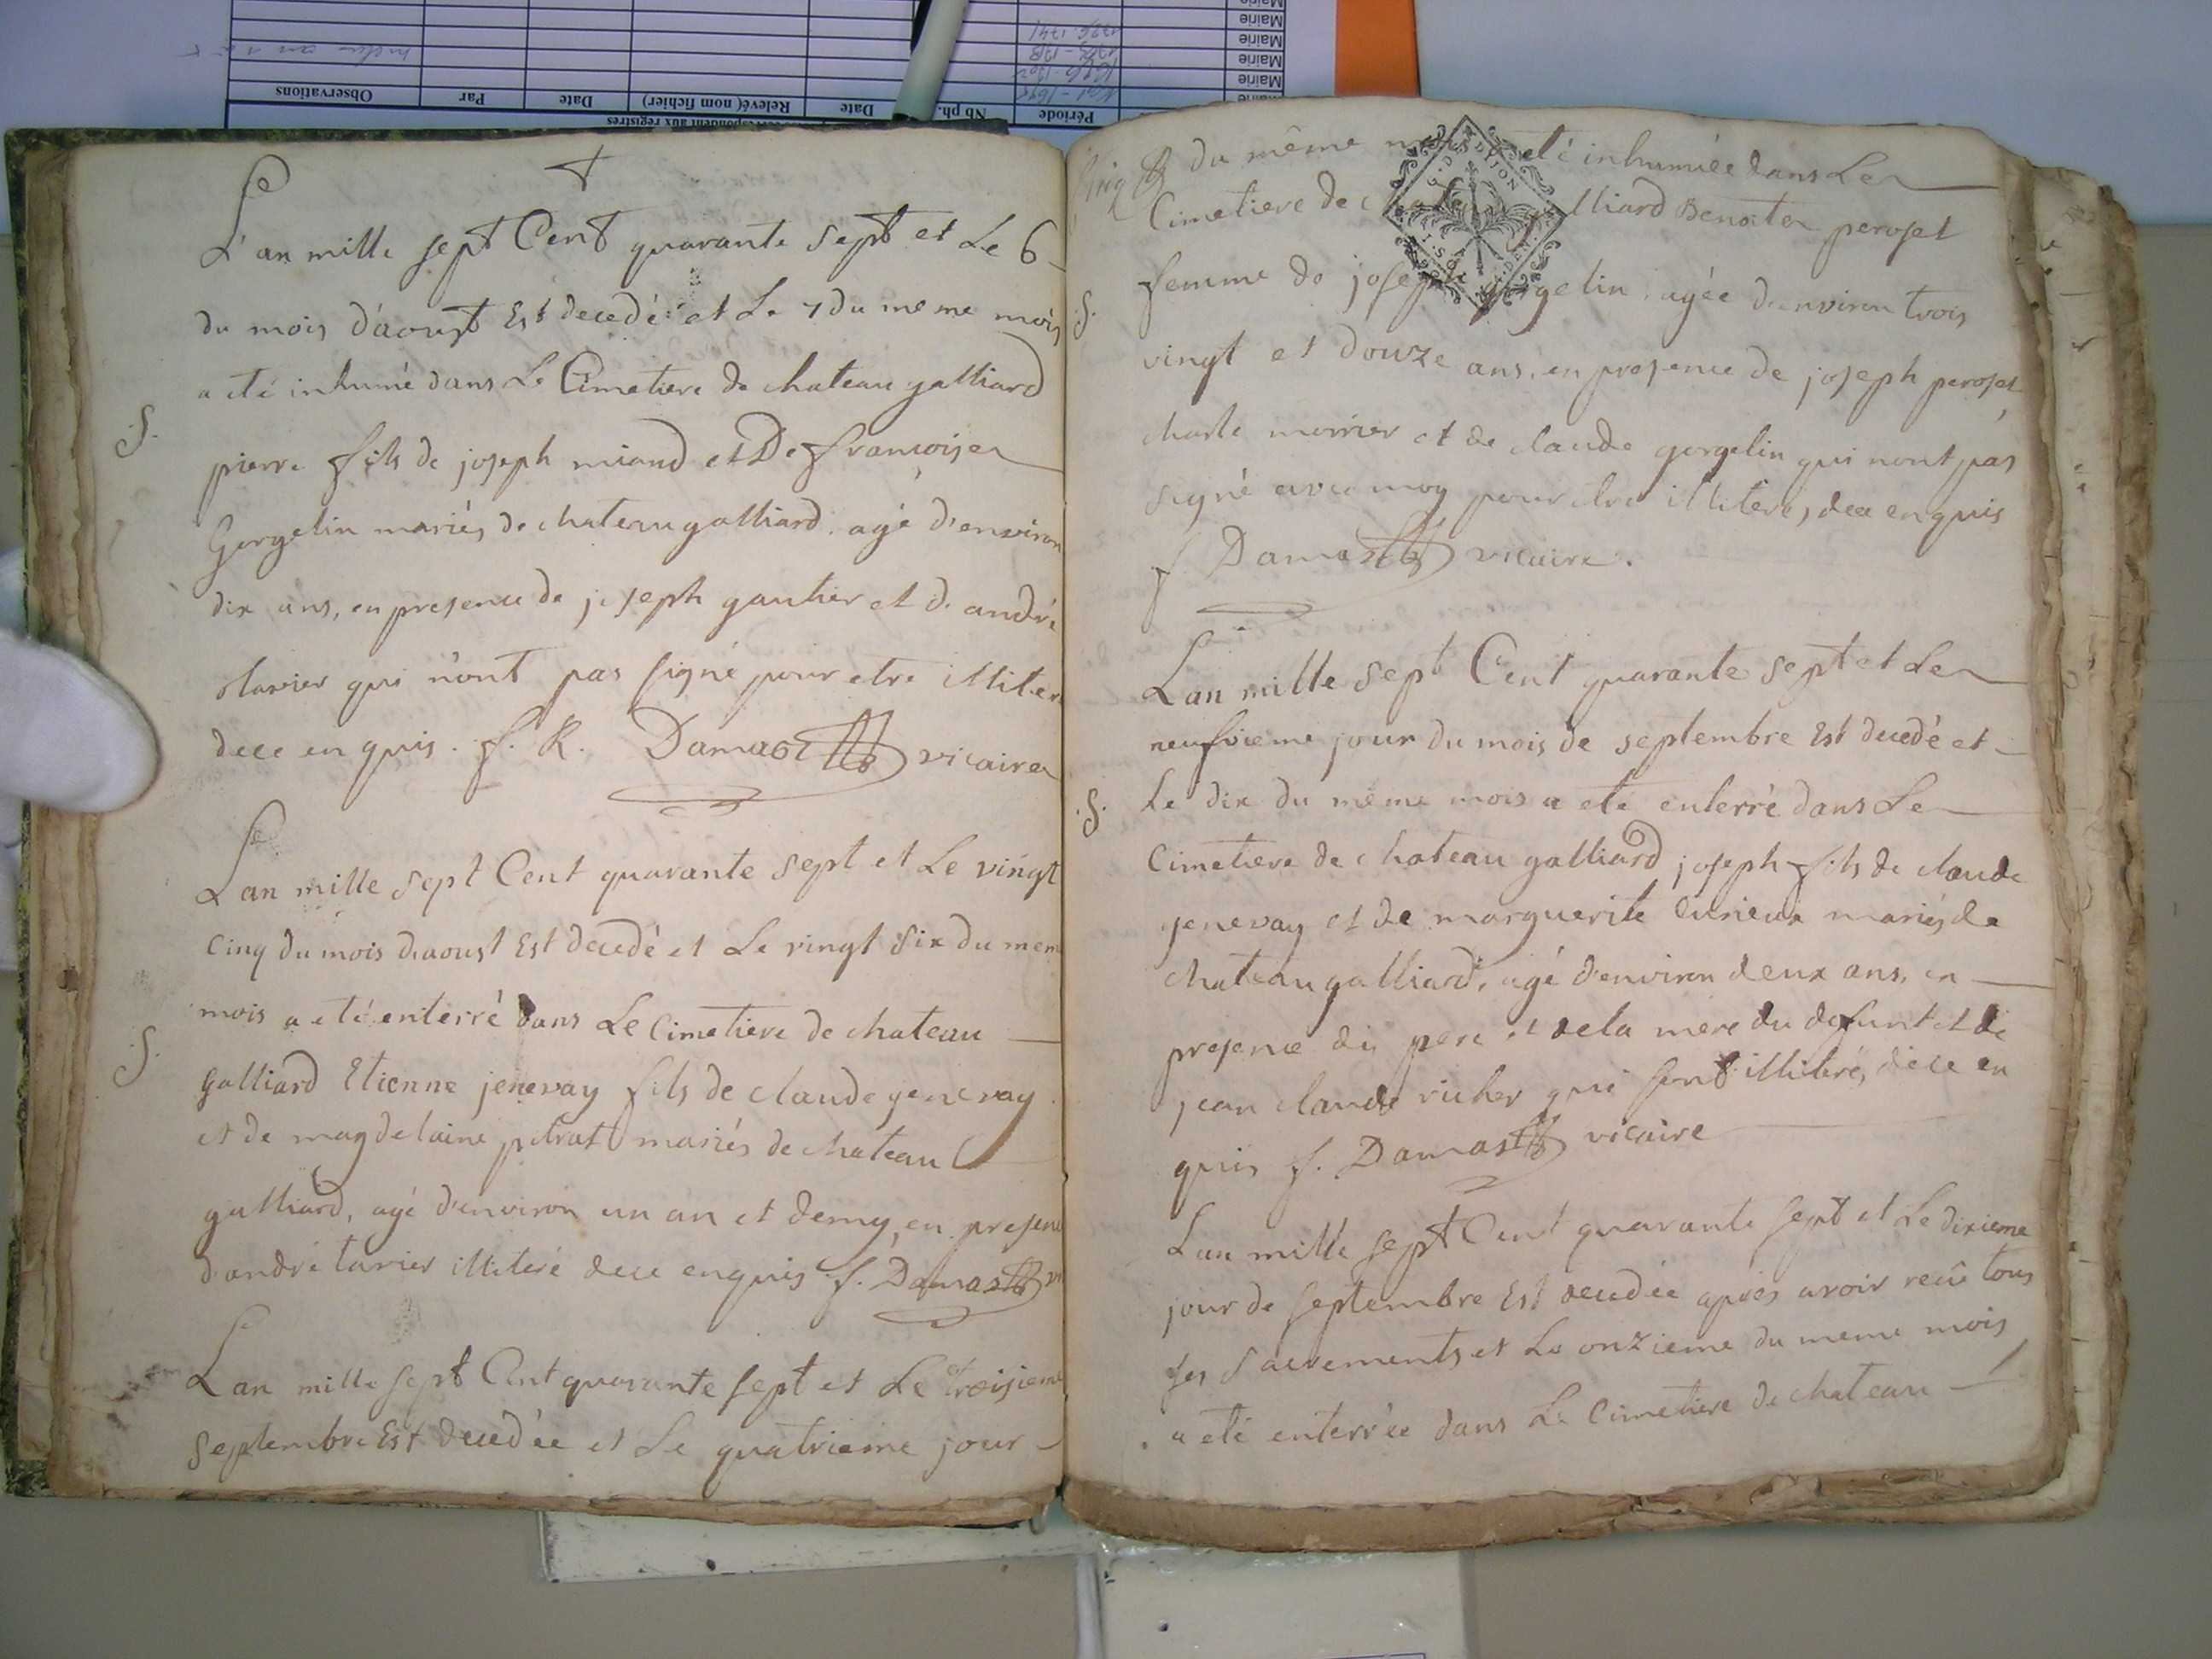 Observations
Par
Date
Relevé( nom fichier)
Date
Nb ph.
Période
Mairie
Mairie
Mairie
Mairie
L'an mille sept Cent quarante sept et Le 6
du mois d'aoust Est decedé et Le 7 du meme mois
a eté inhumé dans Le Cimetiere de chateau galliard
S.
pierre fils de joseph miand et De francoise
Gorgelin mariés de chateau galliard. agé d'environ
dix ans, en presence de joseph gautier et d. andré
tavier qui n'ont pas signé pour etre illiter
dece enquis. f. R. Damas vicaire
L'an mille sept Cent quarante sept et Le vingt
Cinq du mois daoust Est decedé et Le vingt six du mem
mois a eté enterré dans Le Cimetiere de chateau
S.
galliard Etienne jenevay fils de claude genevay
et de magdelaine pitrat mariés de chateau
galliard, agé d'environ un an et demy, en presenc
d'andré tavier illiteré dece enquis f. Damas vi
L'an mille sept Cent quarante sept et Le troisieme
septembre Est decedée et Le quatrieme jour
du même mois a eté inhumée dans Le
Cimetiere de chateau galliard Benoite peroset
femme de joseph gorgelin, agée d'environ trois
S.
vingt et douze ans, en presence de joseph peroset
charle morrier et de claude gorgelin qui nont pas
signé avec moy pour etre illiterés, dece enquis
f. Damas vicaire.
L'an mille sept Cent quarante sept et Le
neufvieme jour du mois de septembre Est decedé et
S.
Le dix du meme mois a eté enterré dans Le
Cimetiere de chateau galliard joseph fils de claude
jenevay et de marguerite curieux mariés de
chateau galliard, agé d'environ deux ans, en
presence du pere et de la mere du defunt et de
jean claude richer qui sont illiteré, dece en
quis f. Damas vicaire
L'an mille sept Cent quarante sept et Le dixieme
jour de septembre Est decedée apres avoir recü tous
ses sacrements et Le onzieme du meme mois
a eté enterrée dans Le Cimetiere de chateau